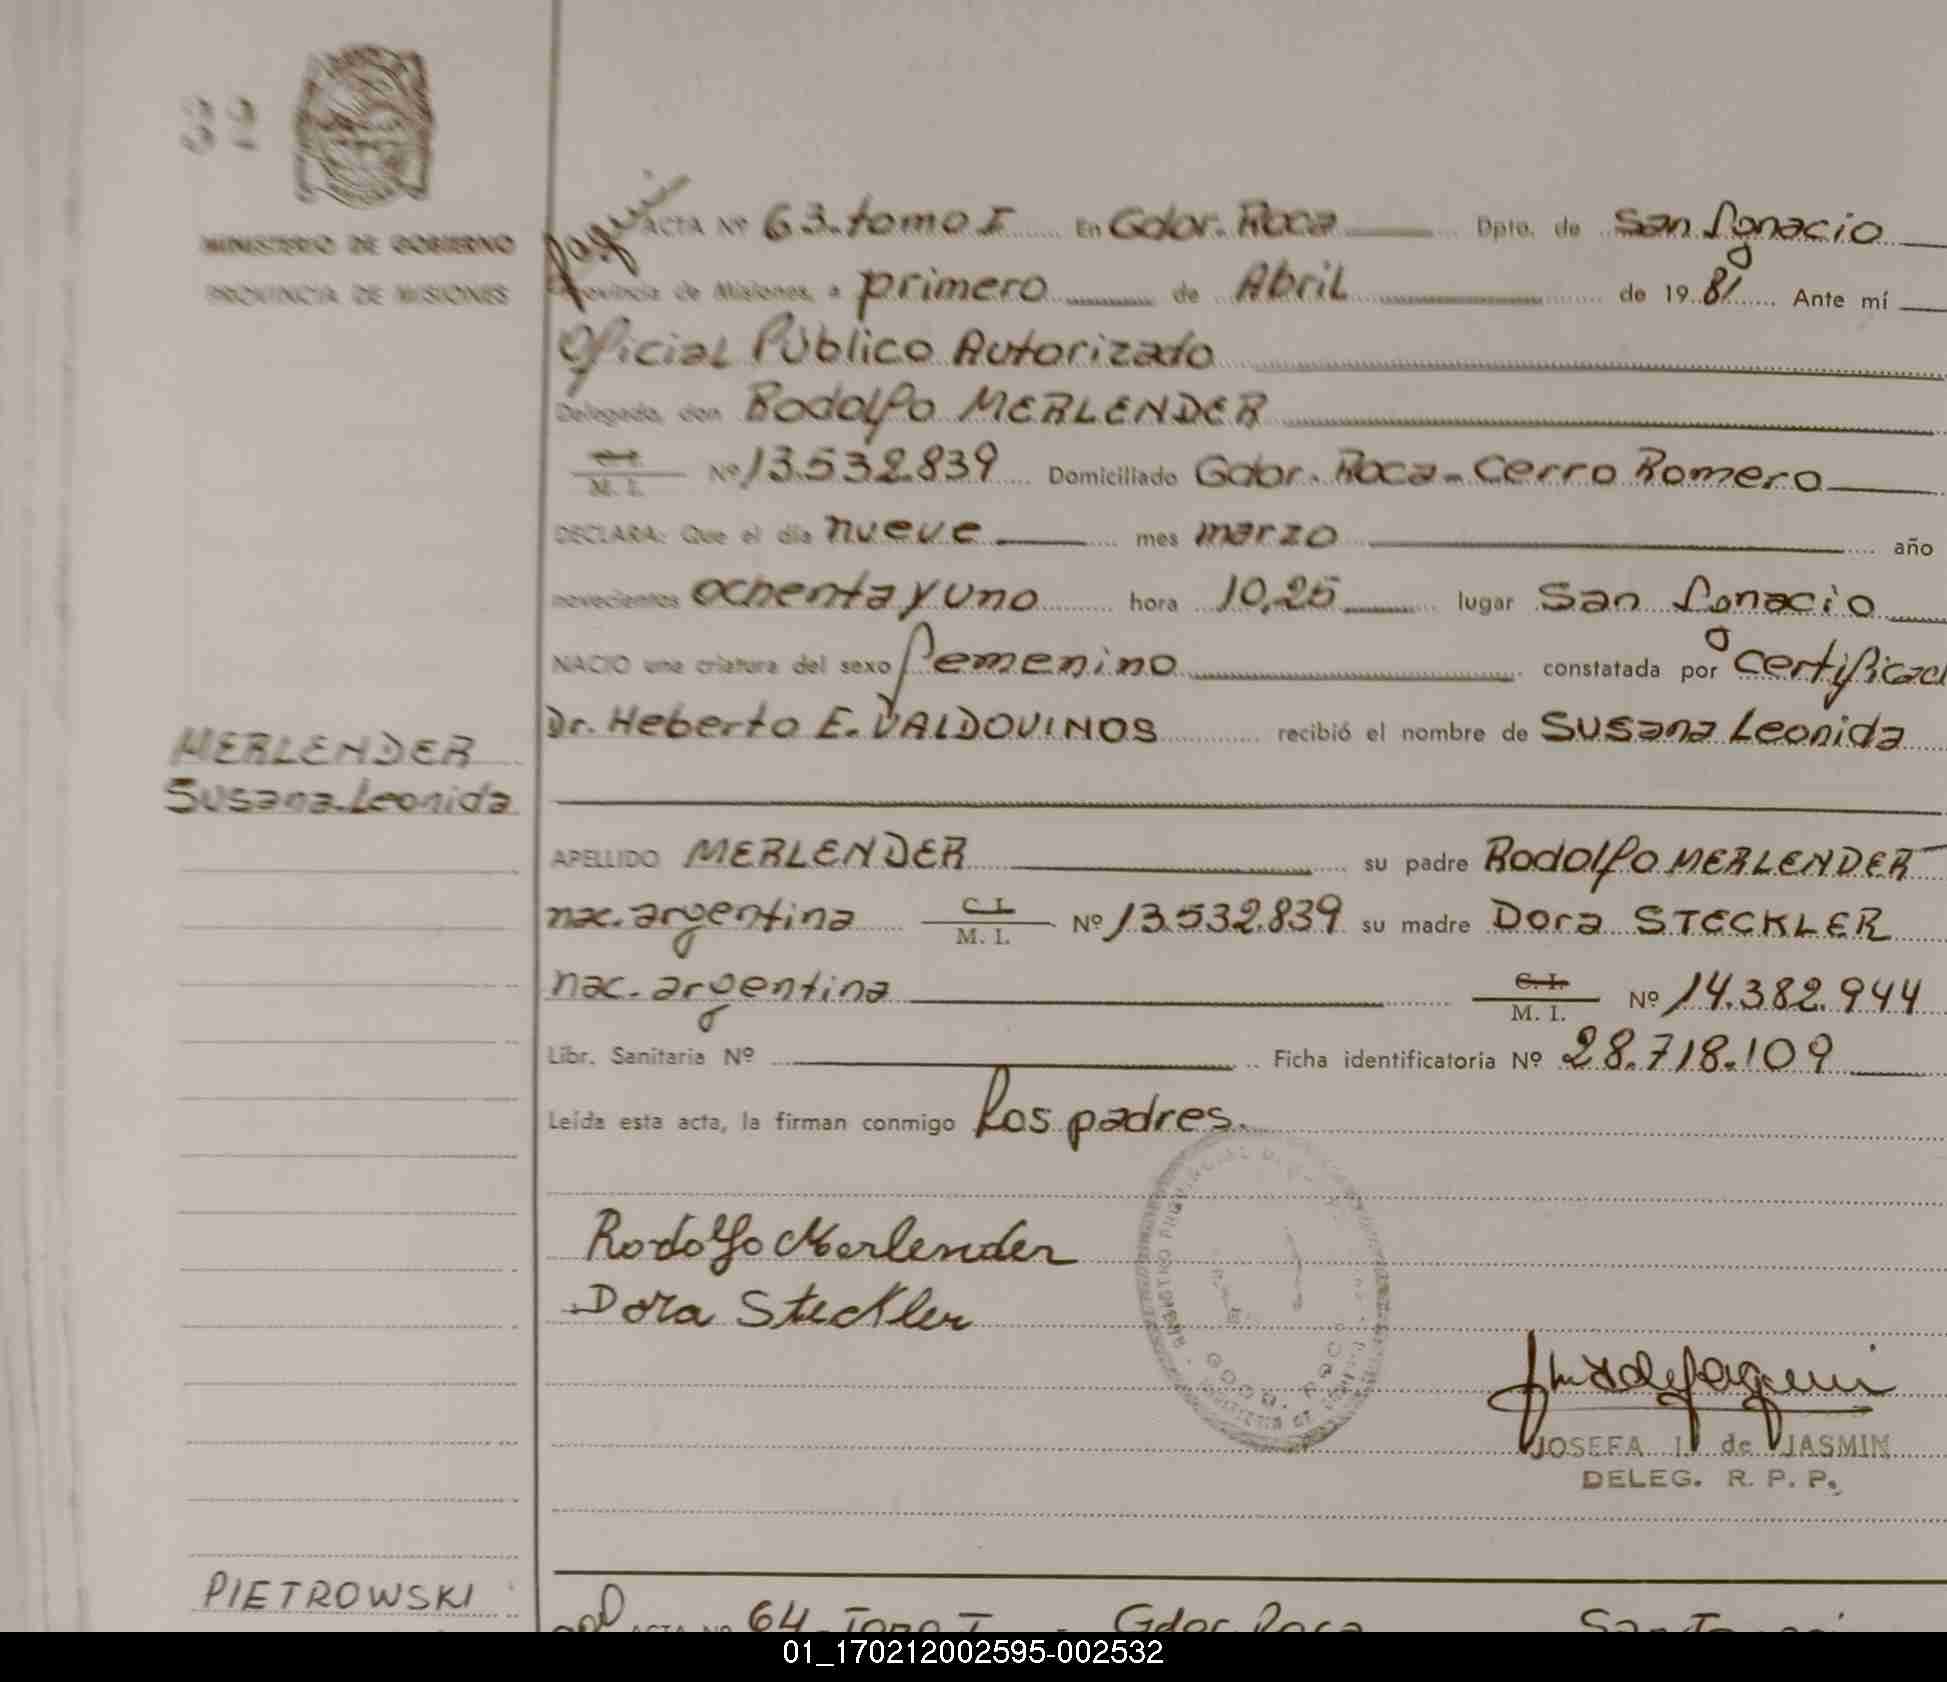 32
MINISTERIO DE GOBIERNO
PROVINCIA DE MISIONES
ACTA Nº 63.tomo I En Gdor. Roca Dpto. de San Ignacio
Provincia de Misiones, a primero de Abril de 19 81 Ante mí
Oficial Público Autorizado
Delegado, don Rodolfo MERLENDER
C. I. M. I. Nº 13.532.839 Domiciliado Gdor. Roca - Cerro Romero
DECLARA: Que el día nueve mes marzo año
novecientos ochenta y uno hora 10,25 lugar San Ignacio
NACIO una criatura del sexo femenino constatada por certificad
Dr. Heberto E. VALDOVINOS recibió el nombre de Susana Leonida
MERLENDER
Susana Leonida
APELLIDO MERLENDER su padre Rodolfo MERLENDER
nac. argentina C. I. M. I. Nº 13.532.839 su madre Dora STECKLER
nac. argentina C. I. M. I. Nº 14.382.944
Libr. Sanitaria Nº Ficha identificatoria Nº 28.718.109
Leída esta acta, la firman conmigo Los padres.
Rodolfo Merlender
Dora Steckler
JOSEFA I. de JASMIN
DELEG. R. P. P.
PIETROWSKI
ACTA Nº 64 Tomo I Gdor. Roca San Ignaci
01_170212002595-002532